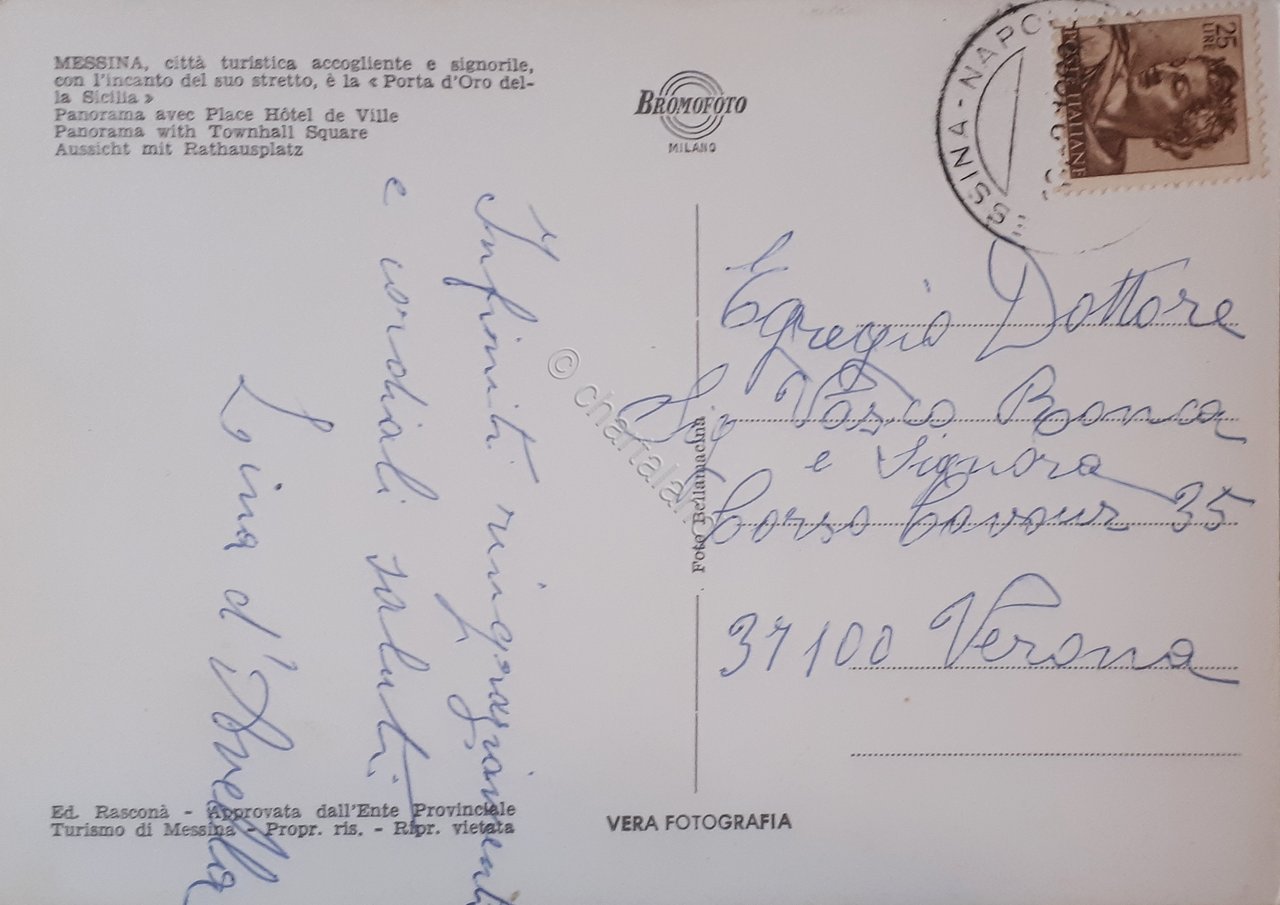 MESSINA, città turistica accogliente e signorile,
con l'incanto del suo stretto, è la « Porta d'Oro del-
la Sicilia »
Panorama avec Place Hôtel de Ville
Panorama with Townhall Square
Aussicht mit Rathausplatz
BROMOFOTO
MILANO
SSINA - NAPO
25
LIRE
POSTE ITALIANE
Infiniti ringraziamenti
e cordiali saluti
Lina d'
Egregio Dottore
Vasco Ronca
e Signora
Corso Cavour 35
37100 Verona
Foto Bellamacina
© chartaland
Ed. Rasconà - Approvata dall'Ente Provinciale
Turismo di Messina - Propr. ris. - Ripr. vietata
VERA FOTOGRAFIA